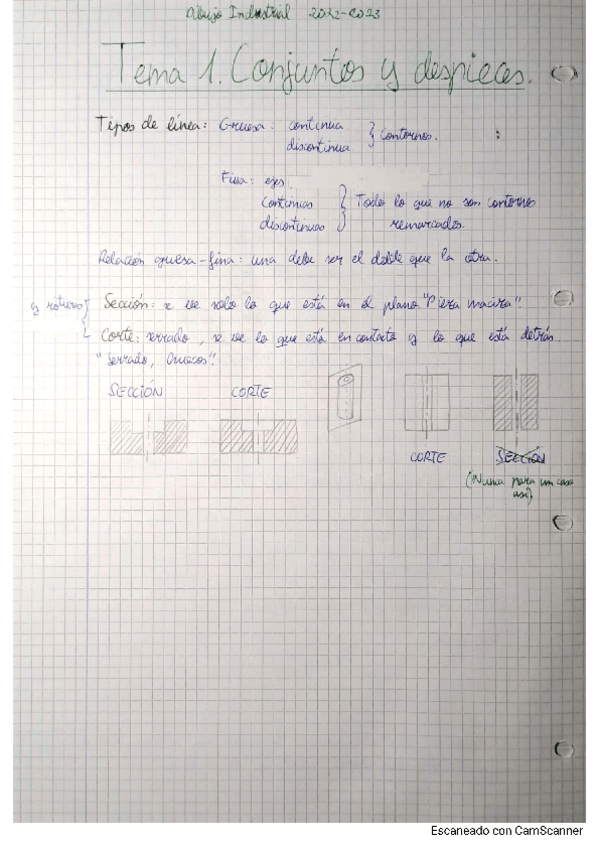 Dibujo Industrial 2022-2023
Tema 1. Conjuntos y despieces.
Tipos de línea: Gruesa: continua } Contornos.
discontinua
Fina: ejes
Continuas } Todo lo que no son contornos
discontinuas remarcados.
Relación gruesa-fina: una debe ser el doble que la otra.
y roturas { Sección: se ve solo lo que está en el plano "Pieza maciza"
Corte: serrado, se ve lo que está en contacto y lo que está detrás.
"Serrado, Huecos".
SECCIÓN CORTE
CORTE SECCIÓN
(Nunca para un caso
así)
Escaneado con CamScanner